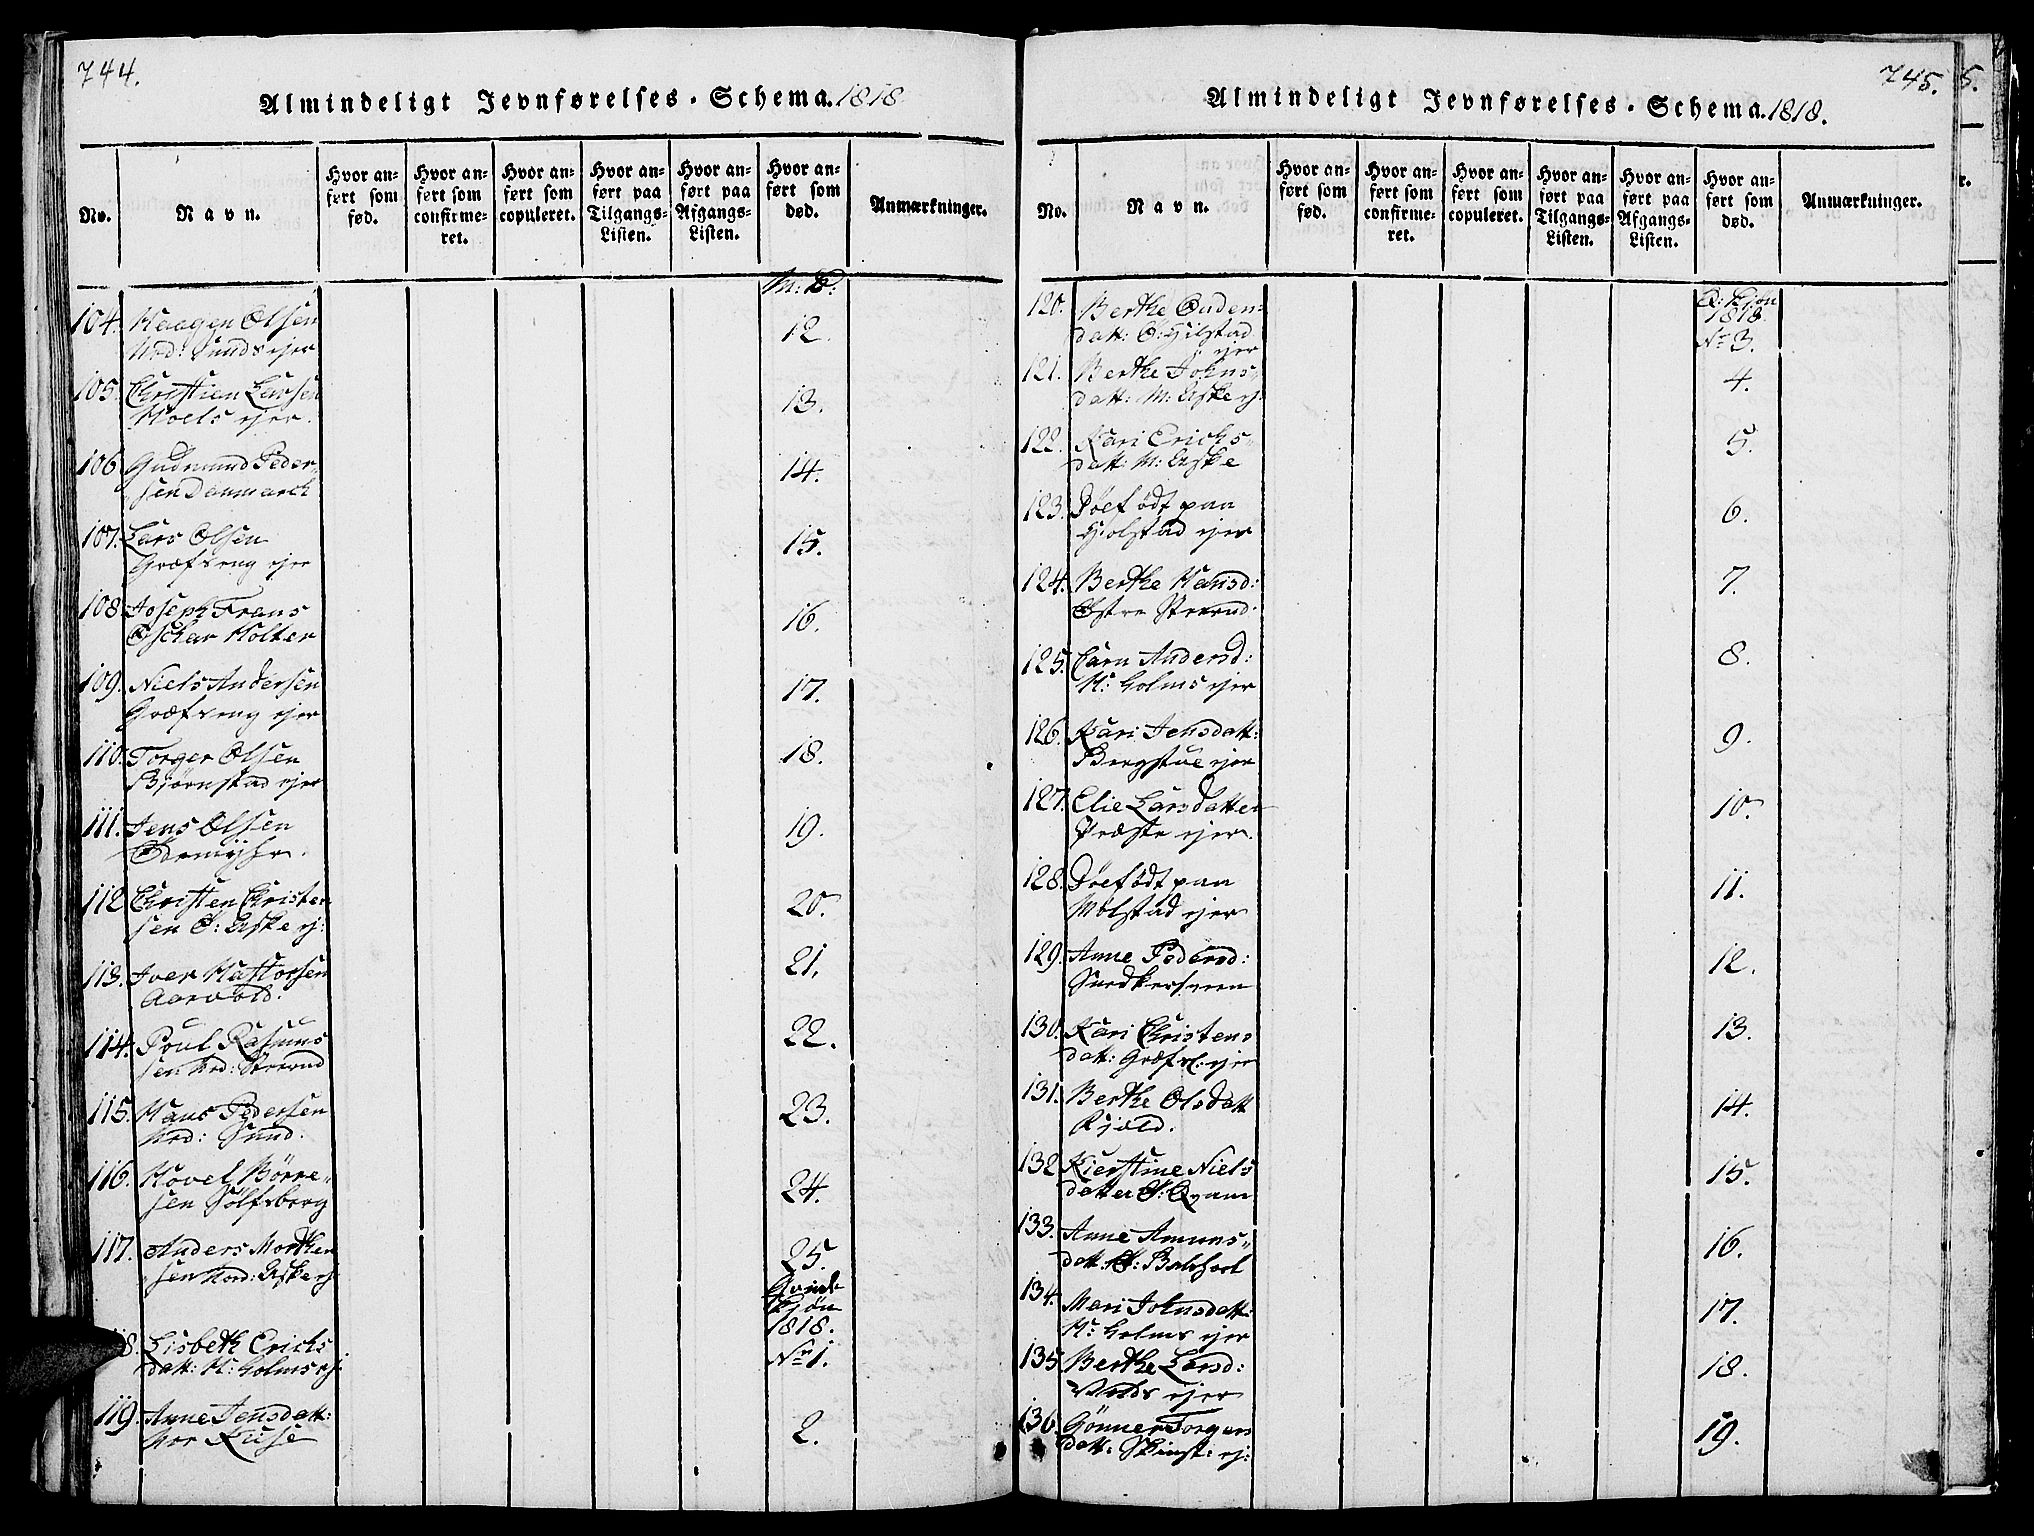 744.
Almindeligt Jevnførelses-Schema. 1818
No.
Navn.
Hvor anført som fød.
Hvor anført som confirmeret.
Hvor anført som copuleret.
Hvor anført paa Tilgangs-Listen.
Hvor anført paa Afgangs-Listen.
Hvor anført som død.
Anmærkninger.
104. Haagen Olsen
Nrd: Sunds ejer
12.
105. Christien Larsen
Hoels ejer.
13.
106 Gudmund Peder-
sen Danmarck
14.
107. Lars Olsen
Græfseng ejer
15.
108 Joseph Frans
Oschar Holter
16.
109. Niels Andersen
Græfseng ejer
17.
110. Torger Olsen
Bjørnstad ejer
18.
111. Jens Olsen
19.
112 Christen Christen
sen Ø: Aske ej:
20.
113. Iver
21.
114. Poul Rasmus
sen Nrd: Steerud
22.
115. Hans Pedersen
Nrd: Sund.
23.
116. Hovel Börre-
sen Sölfsberg
24.
117. Anders Morthen
sen Nord: Aske ej
25.
Qvinde
Kjön
1818.
Lisbeth Erichs
datt: N: Holms ej
No 1.
119. Anne Jensdatt:
2.
745.
Almindeligt Jevnførelses-Schema. 1818.
No.
Navn.
Hvor anført som fød.
Hvor anført som confirmeret.
Hvor anført som copuleret.
Hvor anført paa Tilgangs-Listen.
Hvor anført paa Afgangs-Listen.
Hvor anført som død.
Anmærkninger.
Q: Kjön
1818
120. Berthe Ouden-
datt: Ö: Hilstad
ejer
No 3.
121. Berthe Johns-
datt: M: Aske ej:
4.
122. Kari Erichs-
datt: M: Aske
5.
123. Döefödt paa
Holstad ejer
6.
124. Berthe Hansd:
Østre Steerud
7.
125. Anders d:
N: Holms ejer
8.
126. Kari Jensdatt:
Bergstue ejer
9.
127. Elie Larsdatter
Præste ejer.
10.
128. Döefödt paa
Mölstad ejer
11.
129. Anne Pedersd:
12.
130. Kari Christens
datt: Græfs: ejer
13.
131. Berthe Olsdatt
14.
132 Kierstine Niels
datter S: Qvam
15.
133. Anne Amuns-
datt:
16.
134. Mari Johnsdatt:
N: Holms ejer
17.
135 Berthe Larsd:
ejer
18.
136. Gönner Torgers
datt: ej:
19.